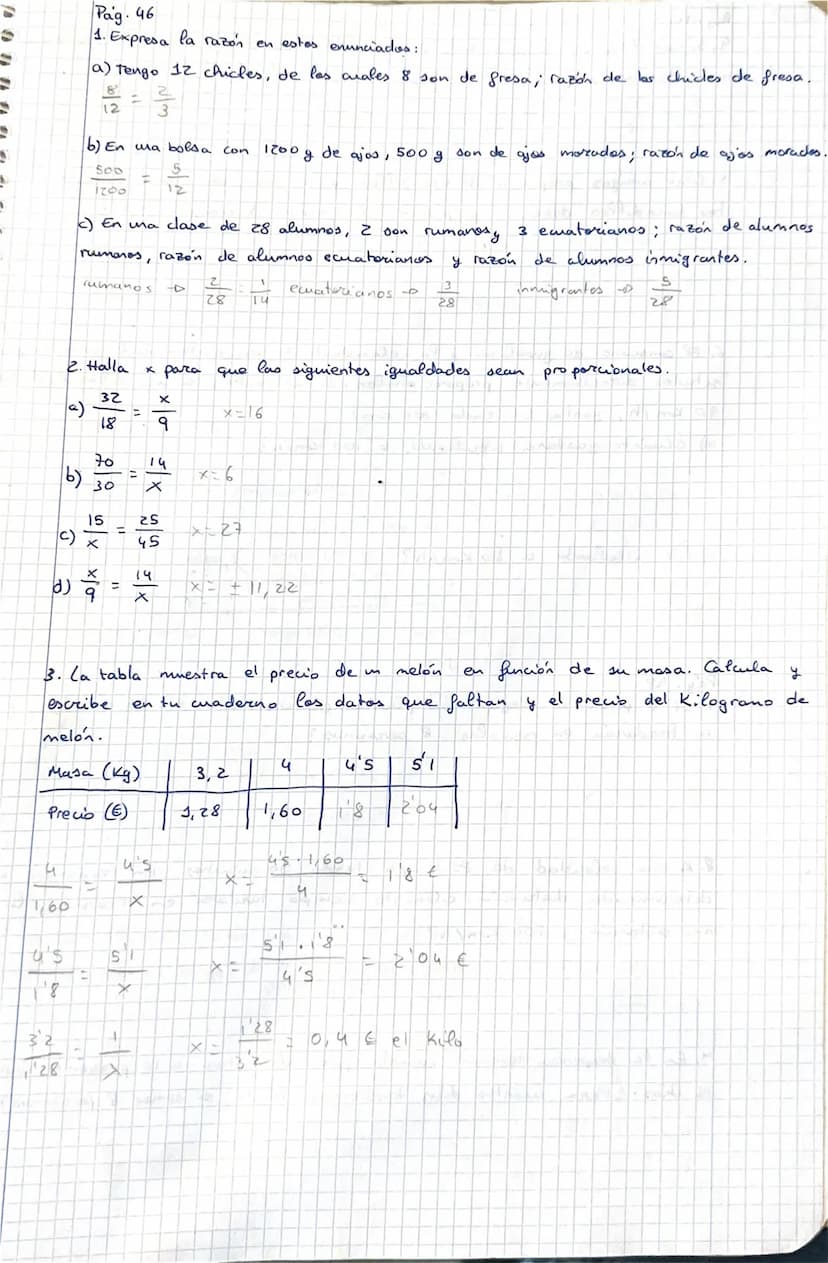 Pág. 46
1. Expresa la razón en estos enunciados:
a) Tengo 12 chicles, de los cuales 8 son de fresa; razón de los chicles de fresa.
8/12 = 2/3
b) En una bolsa con 1200 g de ajos, 500 g son de ajos morados; razón de ajos morados.
500/1200 = 5/12
c) En una clase de 28 alumnos, 2 son rumanos y 3 ecuatorianos; razón de alumnos
rumanos, razón de alumnos ecuatorianos y razón de alumnos inmigrantes.
rumanos → 2/28 = 1/14 ecuatorianos → 3/28 inmigrantes → 5/28
2. Halla x para que las siguientes igualdades sean proporcionales.
a) 32/18 = x/9 x=16
b) 70/30 = 14/x x=6
c) 15/x = 25/45 x=27
d) x/9 = 14/x x= ±11,22
3. La tabla muestra el precio de un melón en función de su masa. Calcula y
escribe en tu cuaderno los datos que faltan y el precio del Kilogramo de
melón.
Masa (Kg) 3,2 4 4'5 5'1
Precio (€) 1,28 1,60 1'8 2'04
4/1,60 = 4'5/x x= 4'5 · 1,60/4 = 1'8 €
4'5/1'8 = 5'1/x x= 5'1 · 1'8/4'5 = 2'04 €
3'2/1'28 = 1/x x= 1'28/3'2 = 0,4 € el Kilo